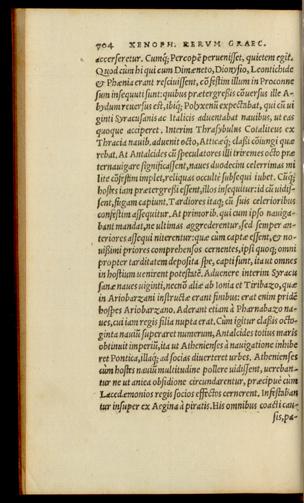 704 XENOPH. RERUM GRAEC.
accerseretur. Cumq; Percopē peruenisset, quietem egit.
Quod cùm hi qui cum Dimæneto, Dionysio, Leontichide
& Phænia erant resciuissent, cōfestim illum in Proconne
sum insequuti sunt: quibus prætergressis cōuersus ille A-
bydum reuersus est, ibiq; Polyxenū expectabat, qui cū ui
ginti Syracusanis ac Italicis aduentabat nauibus, ut eas
quoque acciperet. Interim Thrasybulus Cotaliteus ex
Thracia nauib. aduenit octo, Atticæq; classi cōiungi quæ
rebat, At Antalcides cū speculatores illi triremes octo præ
ternauigare significassent, naues duodecim celerrimas mi
lite cōfestim implet, reliquas occultè subsequi iubet. Cūq;
hostes iam prætergressi essent, illos insequitur: id cū uidis-
sent, fugam capiunt. Tardiores itaq; cū suis celerioribus
confestim assequitur. At primorib. qui cum ipso nauiga-
bant mandat, ne ultimas aggrederentur, sed semper an-
teriores assequi niterentur: quæ cùm captæ essent, & no-
uissimi priores comprehensos cernentes, ipsi quoq; omni
propter tarditatem deposita spe, capti sunt, ita ut omnes
in hostium uenirent potestatē. Aduenere interim Syracu
sanæ naues uiginti, necnō aliæ ab Ionia et Tiribazo, quæ
in Ariobarzani instructæ erant finibus: erat enim pridē
hospes Ariobarzano. Aderant etiam à Pharnabazo na-
ues, cui iam regis filia nupta erat. Cùm igitur classis octo-
ginta nauiū superaret numerum, Antalcides totius maris
obtinuit imperiū, ita ut Athenienses à nauigatione inhibe
ret Pontica, illaq; ad socias diuerteret urbes. Athenienses
cùm hostes nauiū multitudine pollere uidissent, uereban-
tur ne ut antea obsidione circundarentur, præcipuè cùm
Lacedæmonios regis socios effectos cernerent. Infestaban
tur insuper ex Aegina à piratis. His omnibus coacti cau-
sis, pa-